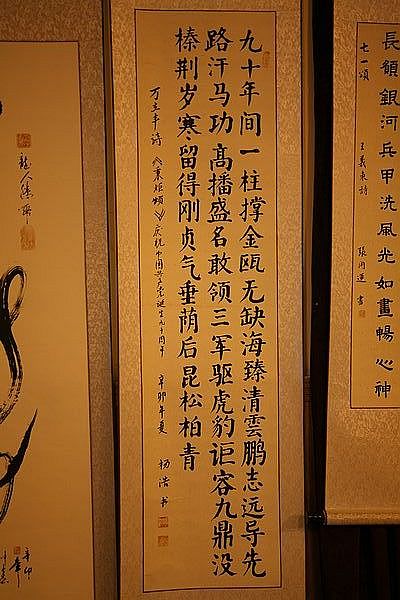 長領銀河兵甲洗風光如畫暢心神
七一頌
九十年间一柱撑金瓯无缺海臻清雲鹏志远导先
路汗马功高播盛名敢领三军驱虎豹讵容九鼎没
榛荆岁寒留得刚贞气垂荫后昆松柏青
万立丰诗《秉炬颂》庆祝中国共产党诞生九十周年 辛卯年夏 杨浩书